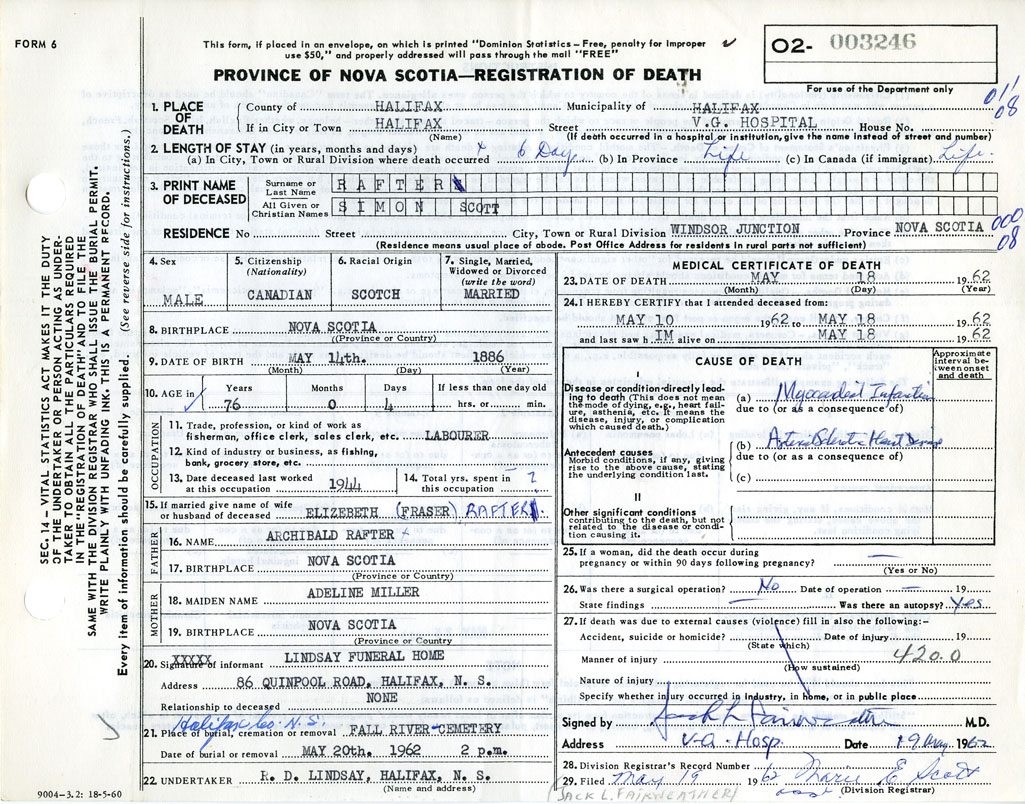 FORM 6
This form, if placed in an envelope, on which is printed "Dominion Statistics — Free, penalty for improper
use $50," and properly addressed will pass through the mail "FREE"
O2- 003246
For use of the Department only
PROVINCE OF NOVA SCOTIA—REGISTRATION OF DEATH
011
08
SEC. 14 — VITAL STATISTICS ACT MAKES IT THE DUTY
OF THE UNDERTAKER OR PERSON ACTING AS UNDER-
TAKER TO OBTAIN ALL THE PARTICULARS REQUIRED
IN THE "REGISTRATION OF DEATH" AND TO FILE THE
SAME WITH THE DIVISION REGISTRAR WHO SHALL ISSUE THE BURIAL PERMIT.
WRITE PLAINLY WITH UNFADING INK. THIS IS A PERMANENT RECORD.
Every item of information should be carefully supplied. (See reverse side for instructions.)
1. PLACE OF DEATH
County of HALIFAX Municipality of HALIFAX
If in City or Town HALIFAX Street V.G. HOSPITAL House No.
(Name) (If death occurred in a hospital or institution, give the name instead of street and number)
2. LENGTH OF STAY (in years, months and days)
(a) In City, Town or Rural Division where death occurred 6 Days (b) In Province Life (c) In Canada (if immigrant) Life.
3. PRINT NAME OF DECEASED
Surname or Last Name RAFTER
All Given or Christian Names SIMON SCOTT
RESIDENCE No Street City, Town or Rural Division WINDSOR JUNCTION Province NOVA SCOTIA
(Residence means usual place of abode. Post Office Address for residents in rural parts not sufficient)
000
08
4. Sex
MALE
5. Citizenship
(Nationality)
CANADIAN
6. Racial Origin
SCOTCH
7. Single, Married,
Widowed or Divorced
(write the word)
MARRIED
8. BIRTHPLACE NOVA SCOTIA
((Province or Country)
9. DATE OF BIRTH MAY 14th. 1886
(Month) (Day) (Year)
10. AGE in
Years Months Days If less than one day old
76 0 4 hrs. or min.
OCCUPATION
11. Trade, profession, or kind of work as
fisherman, office clerk, sales clerk, etc. LABOURER
12. Kind of industry or business, as fishing,
bank, grocery store, etc.
13. Date deceased last worked
at this occupation 1944
14. Total yrs. spent in
this occupation ?
15. If married give name of wife
or husband of deceased ELIZEBETH (FRASER) RAFTER
FATHER
16. NAME ARCHIBALD RAFTER
17. BIRTHPLACE NOVA SCOTIA
(Province or Country)
MOTHER
18. MAIDEN NAME ADELINE MILLER
19. BIRTHPLACE NOVA SCOTIA
(Province or Country)
20. Signature of informant LINDSAY FUNERAL HOME
XXXXX
Address 86 QUINPOOL ROAD, HALIFAX, N. S.
Relationship to deceased NONE
Halifax Co. N.S.
21. Place of burial, cremation or removal FALL RIVER-CEMETERY
Date of burial or removal MAY 20th. 1962 2 p.m.
22. UNDERTAKER R. D. LINDSAY, HALIFAX, N. S.
(Name and address)
9004-3.2: 18-5-60
MEDICAL CERTIFICATE OF DEATH
23. DATE OF DEATH MAY 18 1962
(Month) (Day) (Year)
24. I HEREBY CERTIFY that I attended deceased from:
MAY 10 1962 to MAY 18 1962
and last saw h IM alive on MAY 18 1962
CAUSE OF DEATH
Approximate
interval be-
tween onset
and death
I
Disease or condition directly lead-
ing to death (This does not mean
the mode of dying, e.g., heart fail-
ure, asthenia, etc. It means the
disease, injury, or complication
which caused death.)
(a) Myocardial Infarction
due to (or as a consequence of)
Antecedent causes
Morbid conditions, if any, giving
rise to the above cause, stating
the underlying condition last.
(b) Heart Disease
due to (or as a consequence of)
(c)
II
Other significant conditions
contributing to the death, but not
related to the disease or condi-
tion causing it.
25. If a woman, did the death occur during
pregnancy or within 90 days following pregnancy?
(Yes or No)
26. Was there a surgical operation? No Date of operation 19
State findings Was there an autopsy? Yes
27. If death was due to external causes (violence) fill in also the following:-
Accident, suicide or homicide? Date of injury 19
(State which)
Manner of injury 420.0
(How sustained)
Nature of injury
Specify whether injury occurred in industry, in home, or in public place
Signed by Jack L Fairweather M.D.
Address V-G. Hosp. Date 19 May 1962
28. Division Registrar's Record Number
29. Filed May 19 1962 Marie E Scott
(Division Registrar)
(JACK L. FAIRWEATHER)